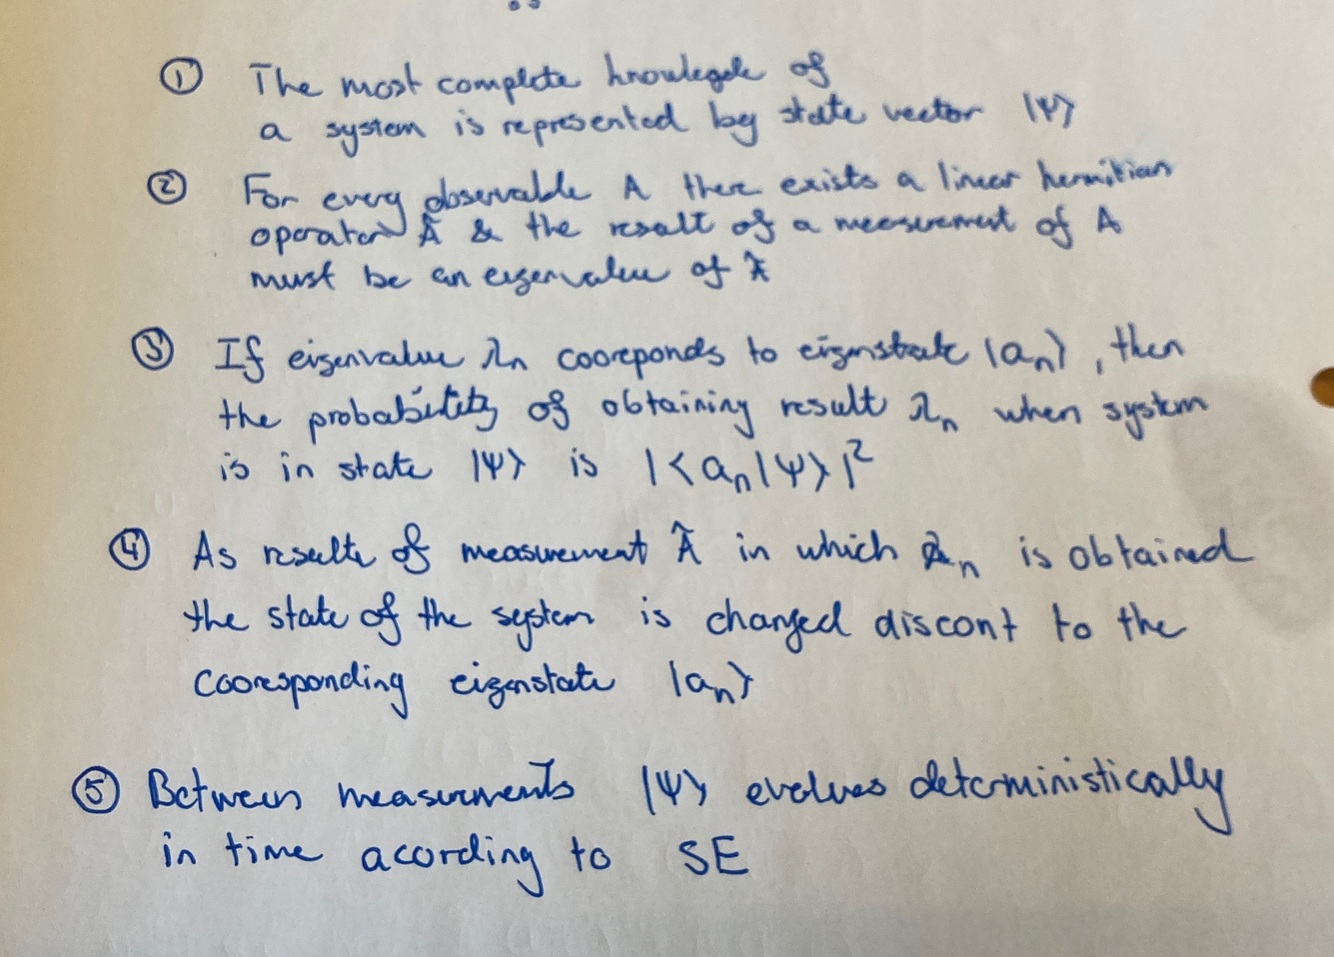 ① The most complete knowlegde of
a system is represented by state vector |Ψ⟩
② For every observable A there exists a linear hermitian
operator Â & the result of a measurement of A
must be an eigenvalue of Â
③ If eigenvalue λn cooreponds to eigenstate |an⟩, then
the probability of obtaining result λn when system
is in state |Ψ⟩ is |⟨an|Ψ⟩|²
④ As results of measurement Â in which λn is obtained
the state of the system is changed discont to the
cooresponding eigenstate |an⟩
⑤ Between measurements |Ψ⟩ evolves deterministically
in time acording to SE